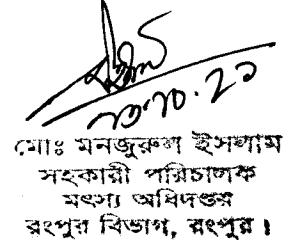 মোঃ মনজুরুল ইসলাম
সহকারী পরিচালক
মৎস্য অধিদপ্তর
রংপুর বিভাগ, রংপুর।